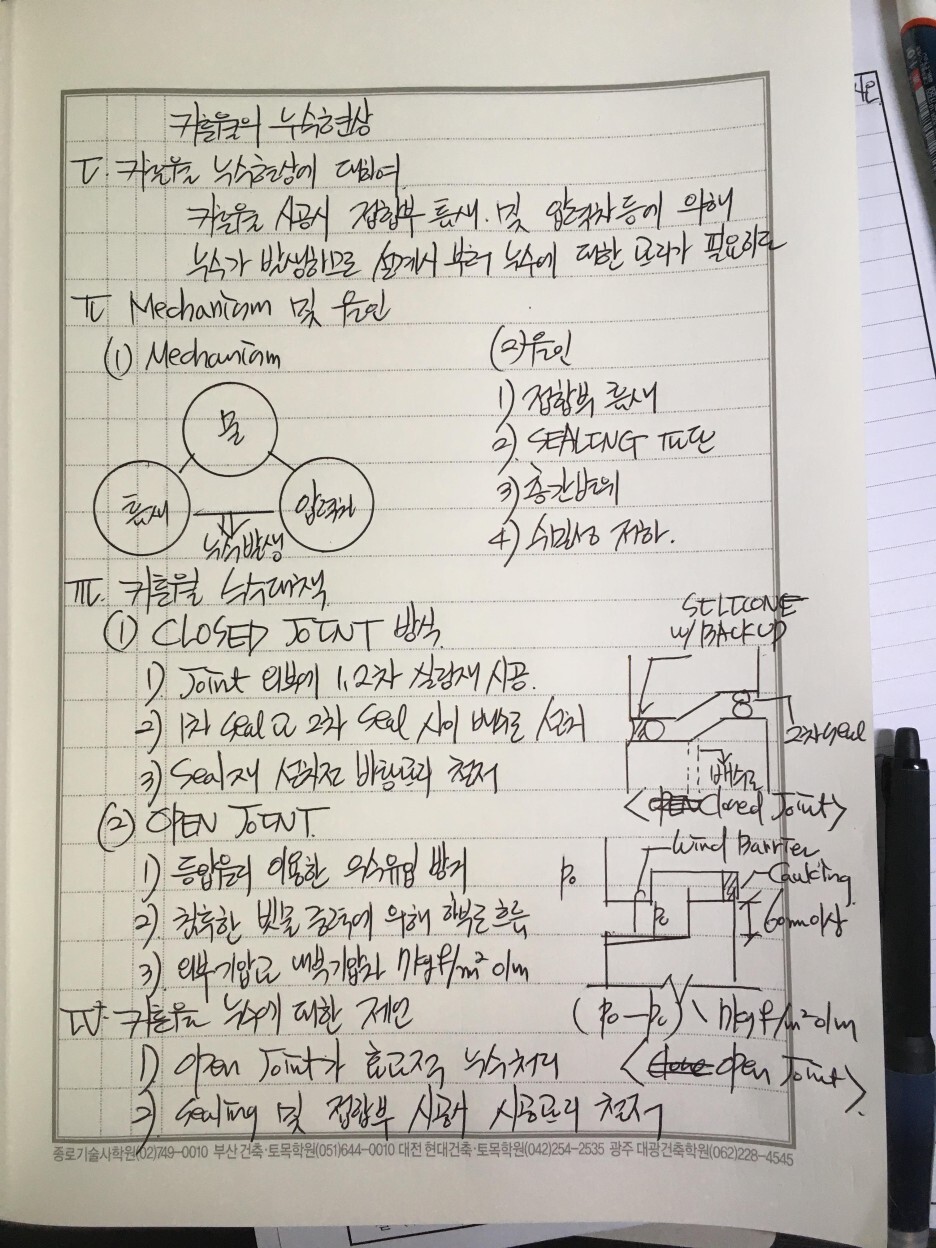 커튼월의 누수현상
I. 커튼월 누수현상에 대하여
커튼월 시공시 접합부 틈새 및 압력차 등에 의해
누수가 발생하므로 설계시 부터 누수에 대한 고려가 필요하다
II Mechanism 및 원인
(1) Mechanism
물
틈새
압력차
누수발생
(2) 원인
1) 접합부 틈새
2) SEALING 파단
3) 층간변위
4) 수밀성 저하.
III. 커튼월 누수대책
(1) CLOSED JOINT 방식
1) Joint 외부에 1, 2차 실링재 시공.
2) 1차 Seal과 2차 Seal 사이 배수로 설치
3) Seal재 설치전 바탕처리 철저
SILICONE
w/ BACK UP
2차 seal
배수로
<Closed Joint>
(2) OPEN JOINT.
1) 등압원리 이용한 우수유입 방지
2) 침투한 빗물 중력에 의해 하부로 흐름
3) 외부기압과 내부기압차 kgf/m² 이내
Wind Barrier
Caulking
Po
Pc
60mm이상
(Po - Pc) kgf/m² 이내
<Open Joint>
IV. 커튼월 누수에 대한 제언
1) Open Joint가 효과적 누수처리
2) Sealing 및 접합부 시공시 시공관리 철저
종로기술사학원(02)749-0010 부산 건축·토목학원(051)644-0010 대전 현대건축·토목학원(042)254-2535 광주 대광건축학원(062)228-4545